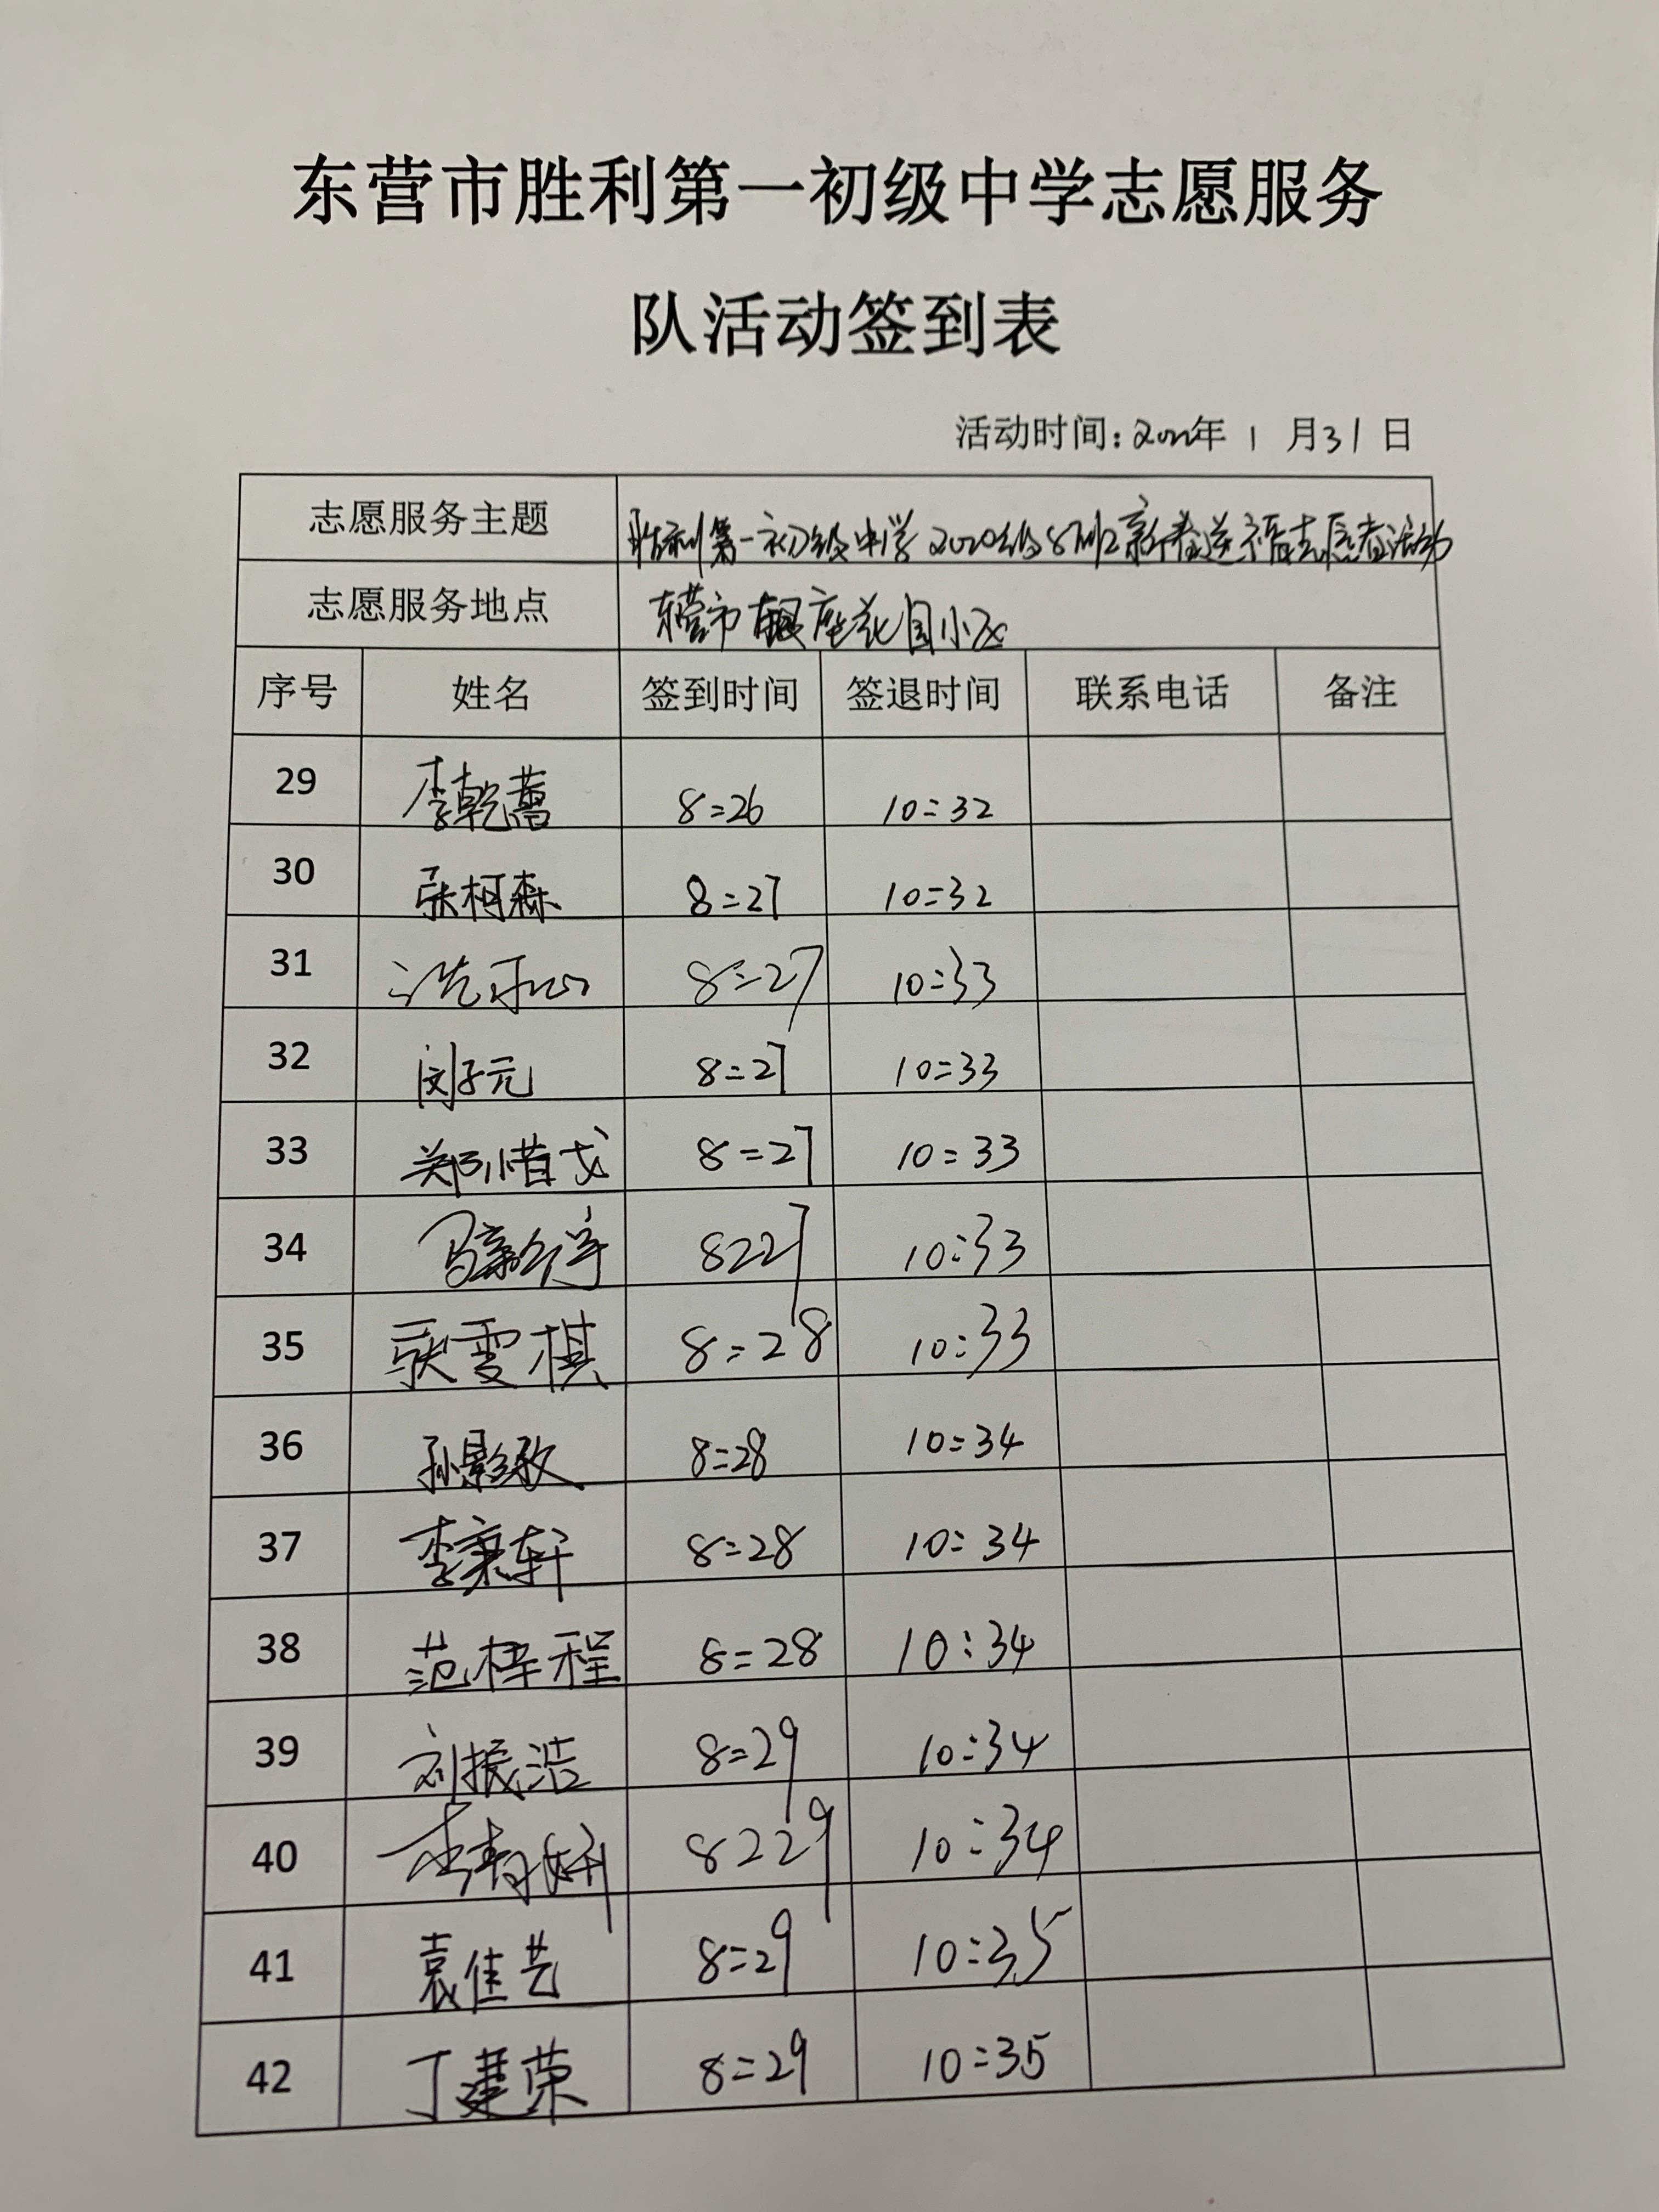 东营市胜利第一初级中学志愿服务
队活动签到表
活动时间：2022年 1 月31 日
志愿服务主题 胜利第一初级中学2020级8班新春送福志愿者活动
志愿服务地点 东营市银座花园小区
序号 姓名 签到时间 签退时间 联系电话 备注
29 李乾 8:26 10:32
30 张柯森 8:27 10:32
31 8:27 10:33
32 闵子元 8:27 10:33
33 郑惜戈 8:27 10:33
34 马 8:27 10:33
35 耿雯棋 8:28 10:33
36 孙影 8:28 10:34
37 李秉轩 8:28 10:34
38 范梓程 8:28 10:34
39 刘振浩 8:29 10:34
40 李青妍 8:29 10:34
41 袁佳艺 8:29 10:35
42 丁建荣 8:29 10:35